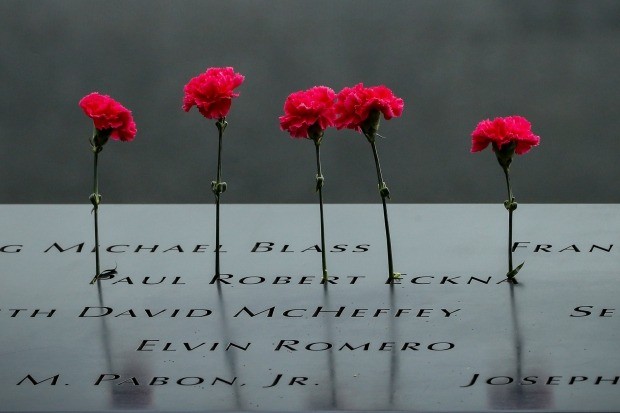 g Michael Blass Fran
Paul Robert Eckna
th David McHeffey Se
Elvin Romero
M. Pabon, Jr. Joseph